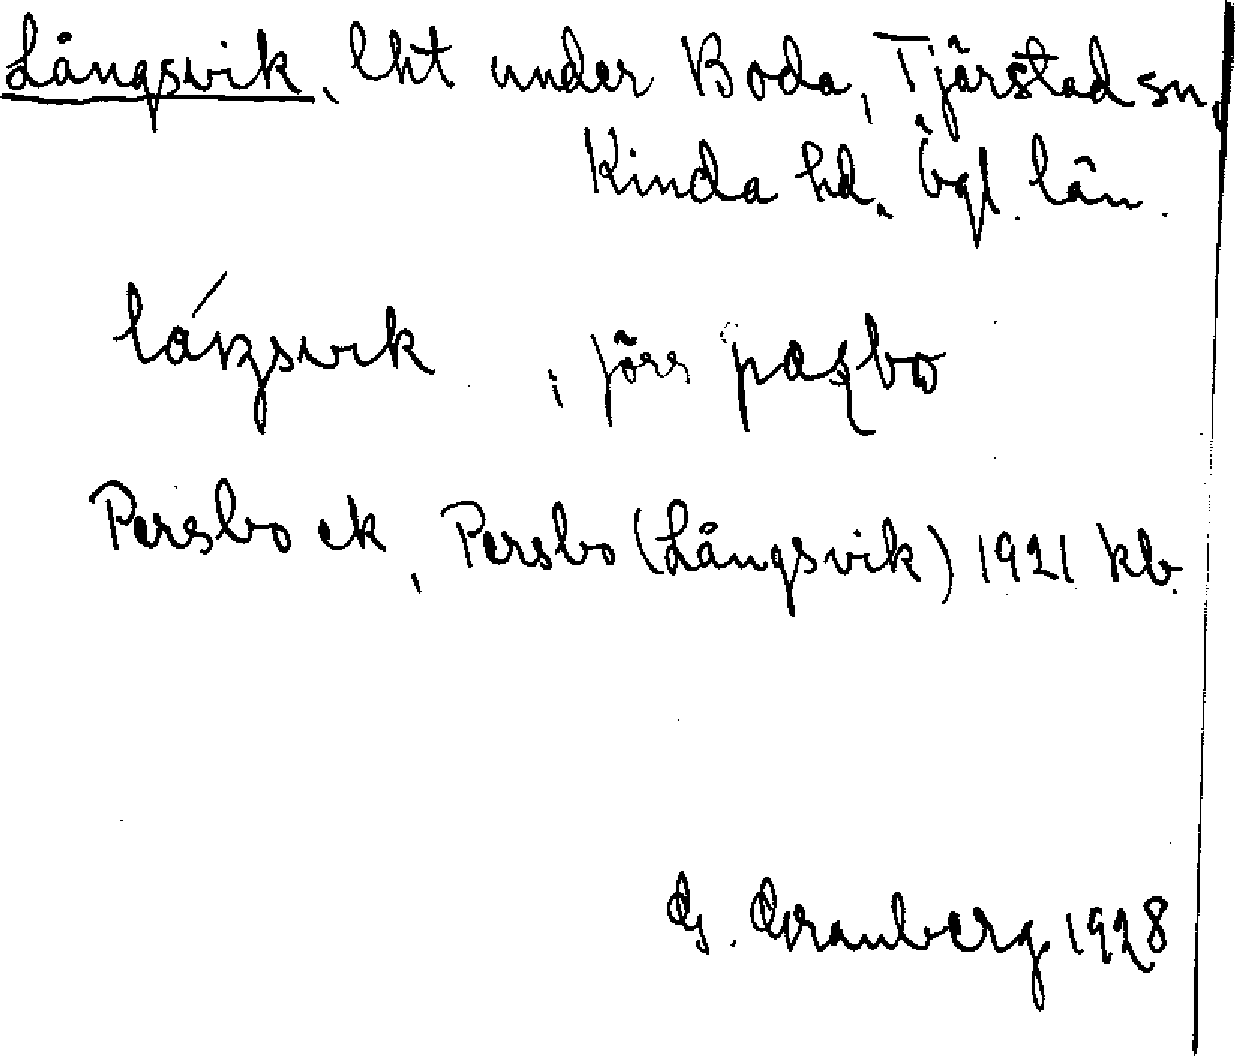 Långsvik, lht under Boda, Tjärstad sn,
Kinda hd, Ögl. län.
láŋsvɩk, förr pæʂbo
Persbo ek, Persbo (Långsvik) 1921 kb.
G. Granberg 1928